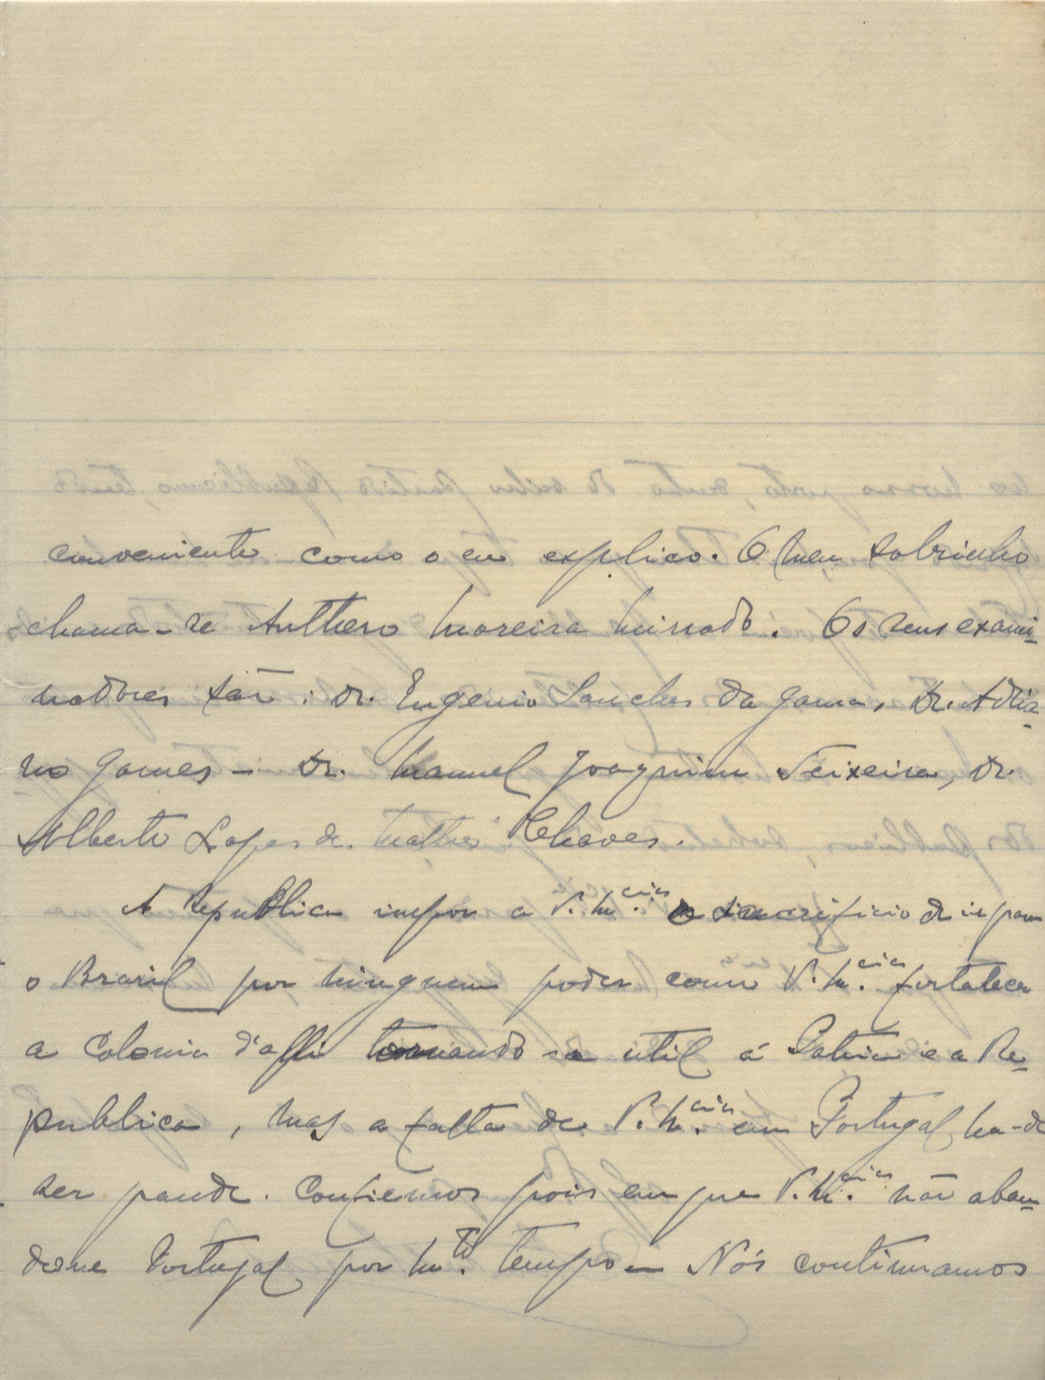 conveniente como o eu explico. O meu sobrinho
chama-se Anthero Moreira . Os seus exami-
nadores são: dr. Eugenio Sanches da Gama, Dr. Adria-
no Gomes - Dr. Manuel Joaquim Teixeira, dr.
Alberto Lopes de Mattos Chaves.
A Republica impoz a V. M.cia o sacrificio de ir para
o Brazil por ninguem poder como V. M.cia fortalecer
a Colonia d'alli tornando-a util á Patria e a Re-
publica, mas a falta de V. M.cia em Portugal ha-de
ser grande. Confiemos pois em que V. M.cia não aban-
done Portugal por m.to tempo - Nós continuamos